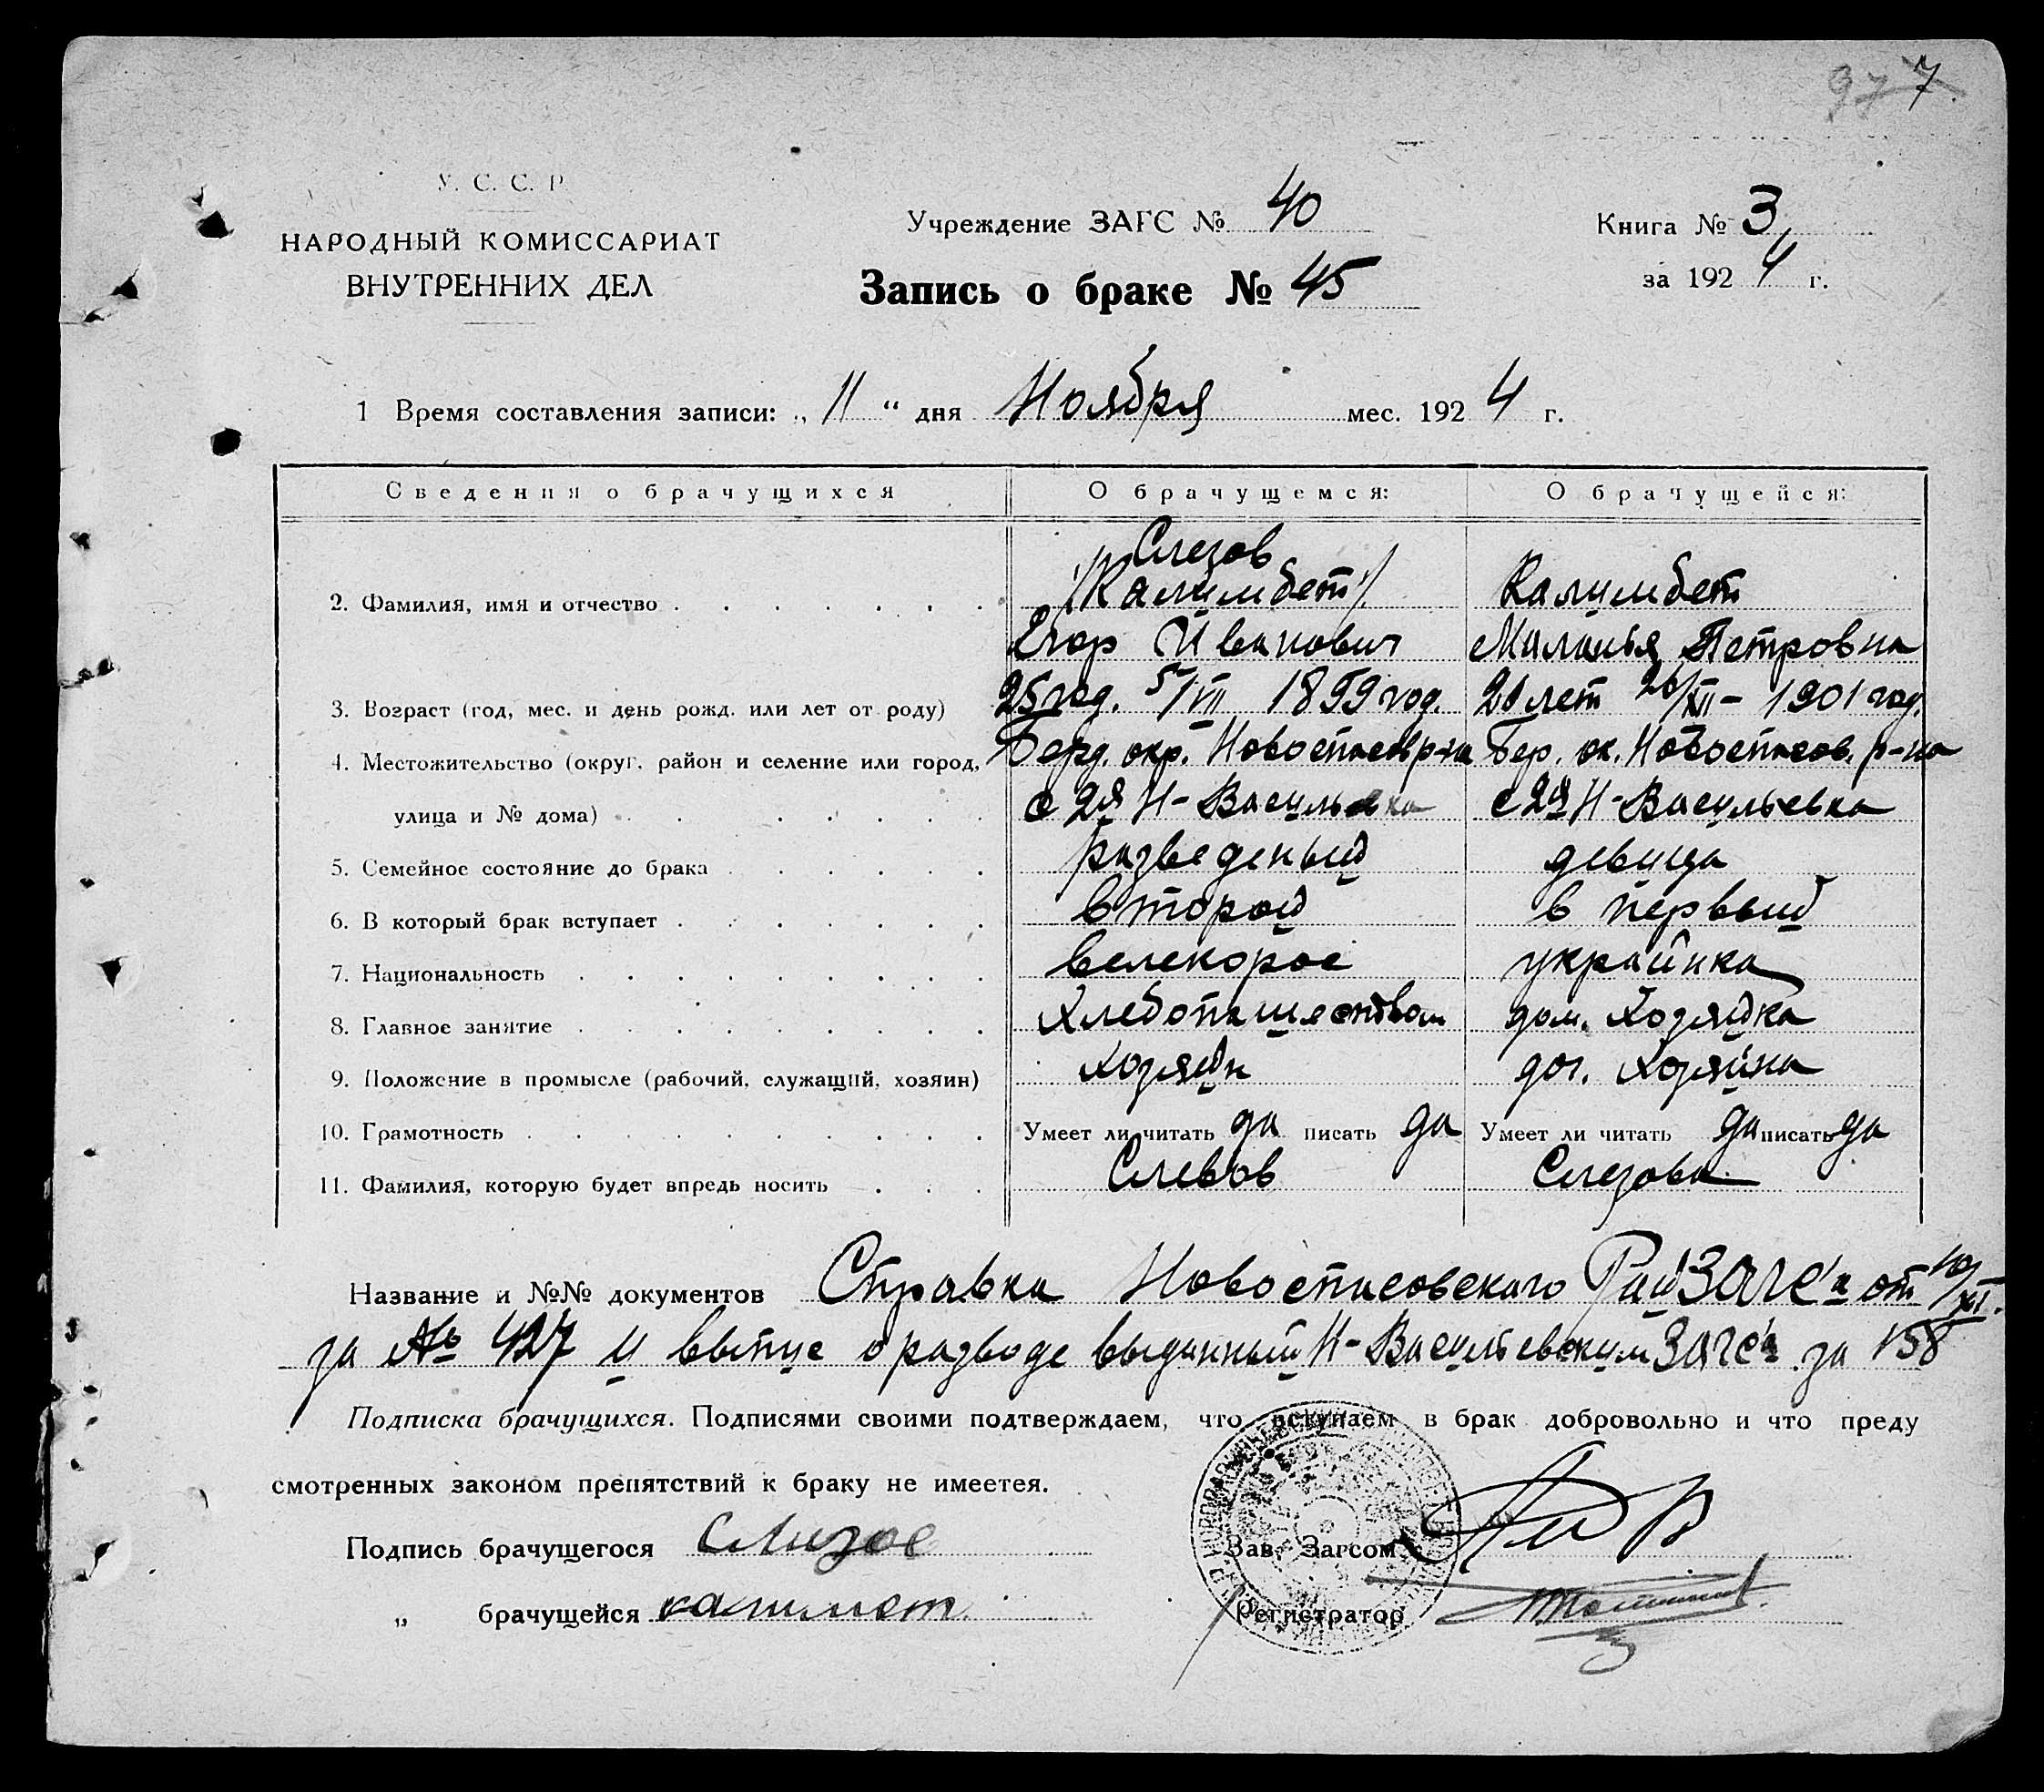 977
У. С. С. Р.
НАРОДНЫЙ КОМИССАРИАТ
ВНУТРЕННИХ ДЕЛ
Учреждение ЗАГС № 40
Запись о браке № 45
Книга № 3
за 1924 г.
1 Время составления записи: „ 11 “ дня Ноября мес. 1924 г.
Сведения о брачущихся О брачущемся: О брачущейся:
Слезов
2. Фамилия, имя и отчество /Калимбет/ Калимбет
Егор Иванович Маланья Петровна
3. Возраст (год, мес. и день рожд. или лет от роду) 25 год. 5/VII 1899 год. лет 26/XII - 1901 год.
4. Местожительство (округ, район и селение или город, Берд. окр. Новоспасов р-на Бер. ок. Новоспасов. р-на
улица и № дома) с 2я Н-Васильевка с 2я Н-Васильевка
5. Семейное состояние до брака разведеный девица
6. В который брак вступает второй в первый
7. Национальность велекорос украинка
8. Главное занятие Хлебопашеством дом. Хозяйка
9. Положение в промысле (рабочий, служащий, хозяин) хозяин доч. Хозяина
10. Грамотность Умеет ли читать да писать да Умеет ли читать да писать да
11. Фамилия, которую будет впредь носить Слезов Слезова
Название и №№ документов Справка Новоспасовского РайЗАГС'а от 10/XI.
за № 427 и выпис о разводе выданный Н-Васильевским Загс'а за 158
Подписка брачущихся. Подписями своими подтверждаем, что вступаем в брак добровольно и что преду
смотренных законом препятствий к браку не имеетея.
Подпись брачущегося Слизов
Зав. Загсом
„ брачущейся калимбет
Регистратор